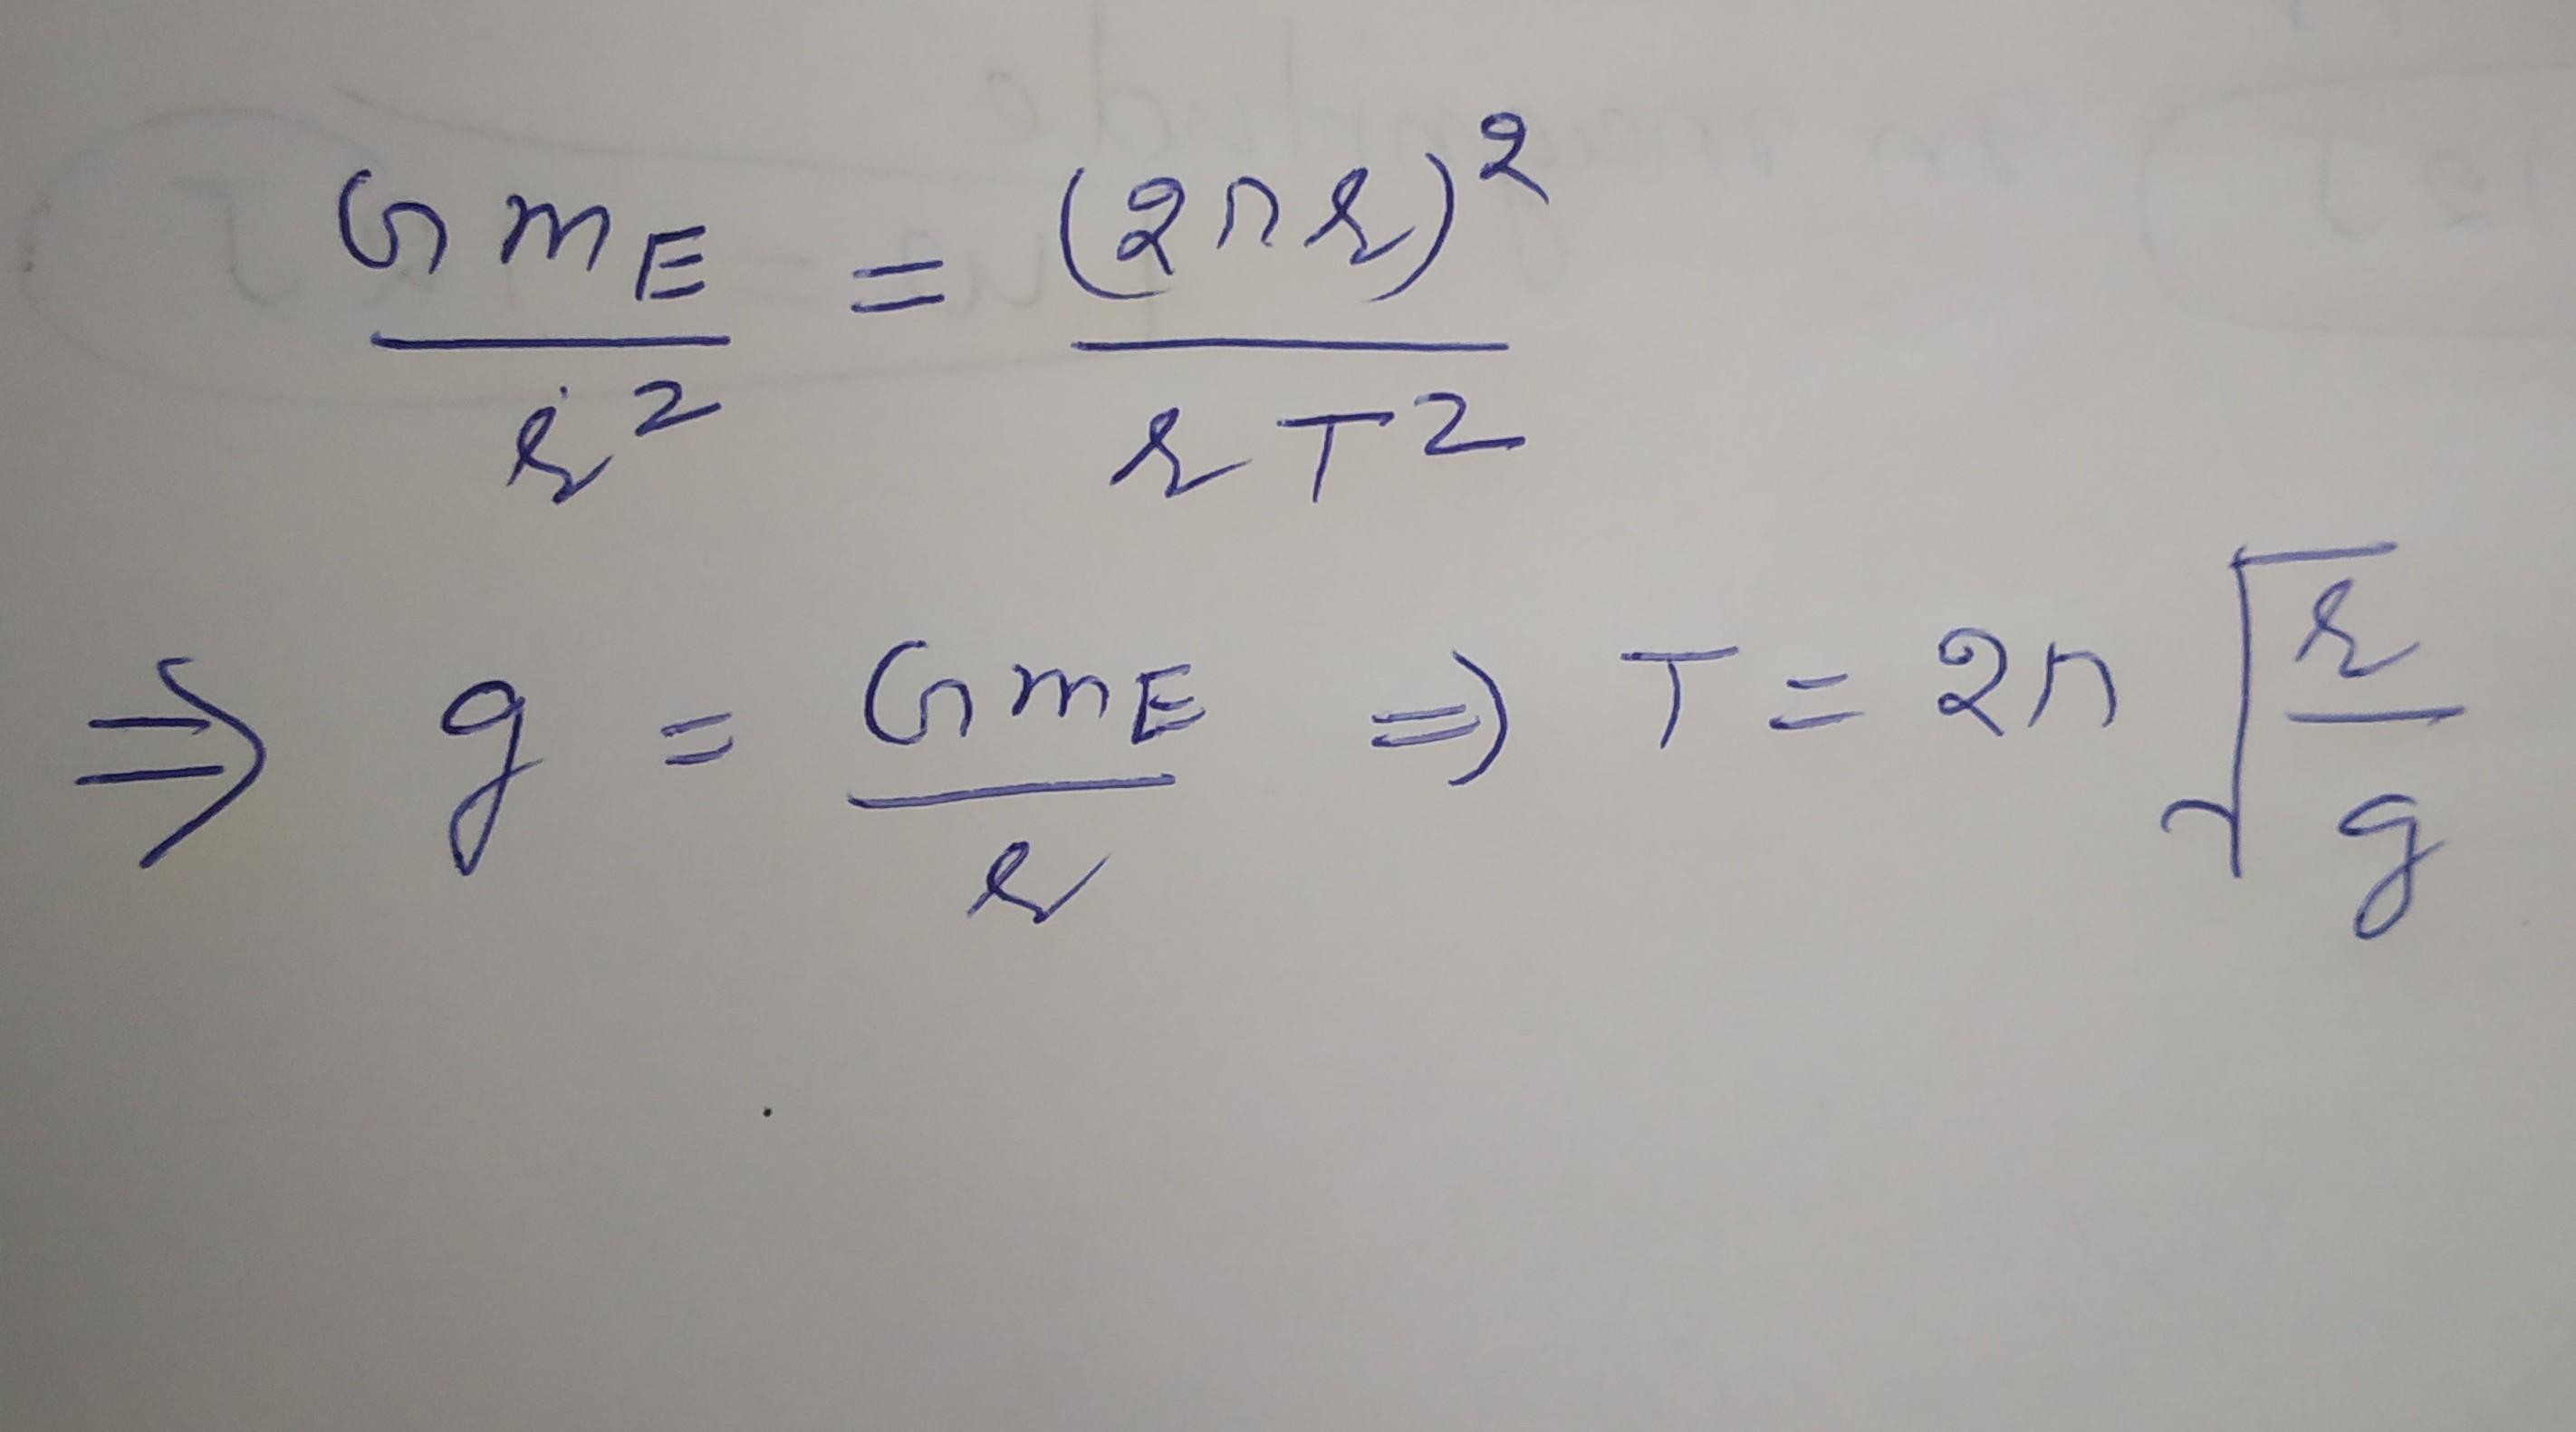 G m_E / r² = (2πr)² / r T²
⇒ g = G m_E / r ⇒ T = 2π √(r / g)